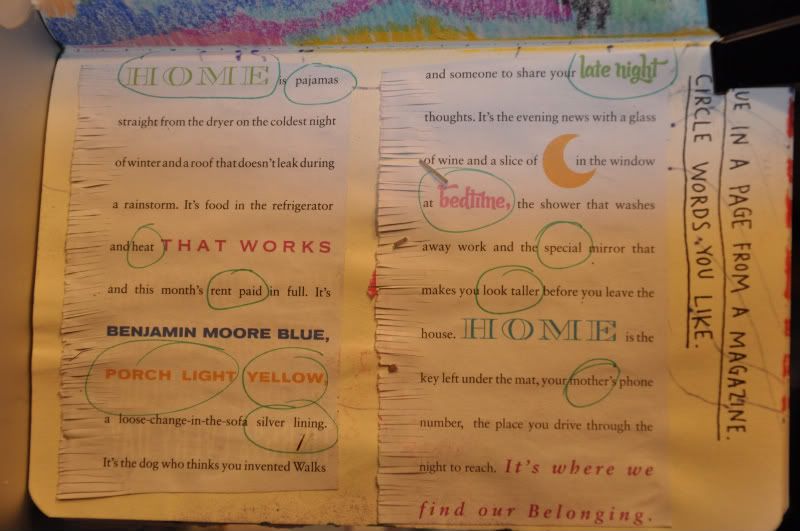 HOME is pajamas
straight from the dryer on the coldest night
of winter and a roof that doesn't leak during
a rainstorm. It's food in the refrigerator
and heat THAT WORKS
and this month's rent paid in full. It's
BENJAMIN MOORE BLUE,
PORCH LIGHT YELLOW,
a loose-change-in-the-sofa silver lining.
It's the dog who thinks you invented Walks
and someone to share your late night
thoughts. It's the evening news with a glass
of wine and a slice of in the window
at bedtime, the shower that washes
away work and the special mirror that
makes you look taller before you leave the
house. HOME is the
key left under the mat, your mother's phone
number, the place you drive through the
night to reach. It's where we
find our Belonging.
UE IN A PAGE FROM A MAGAZINE.
CIRCLE WORDS YOU LIKE.